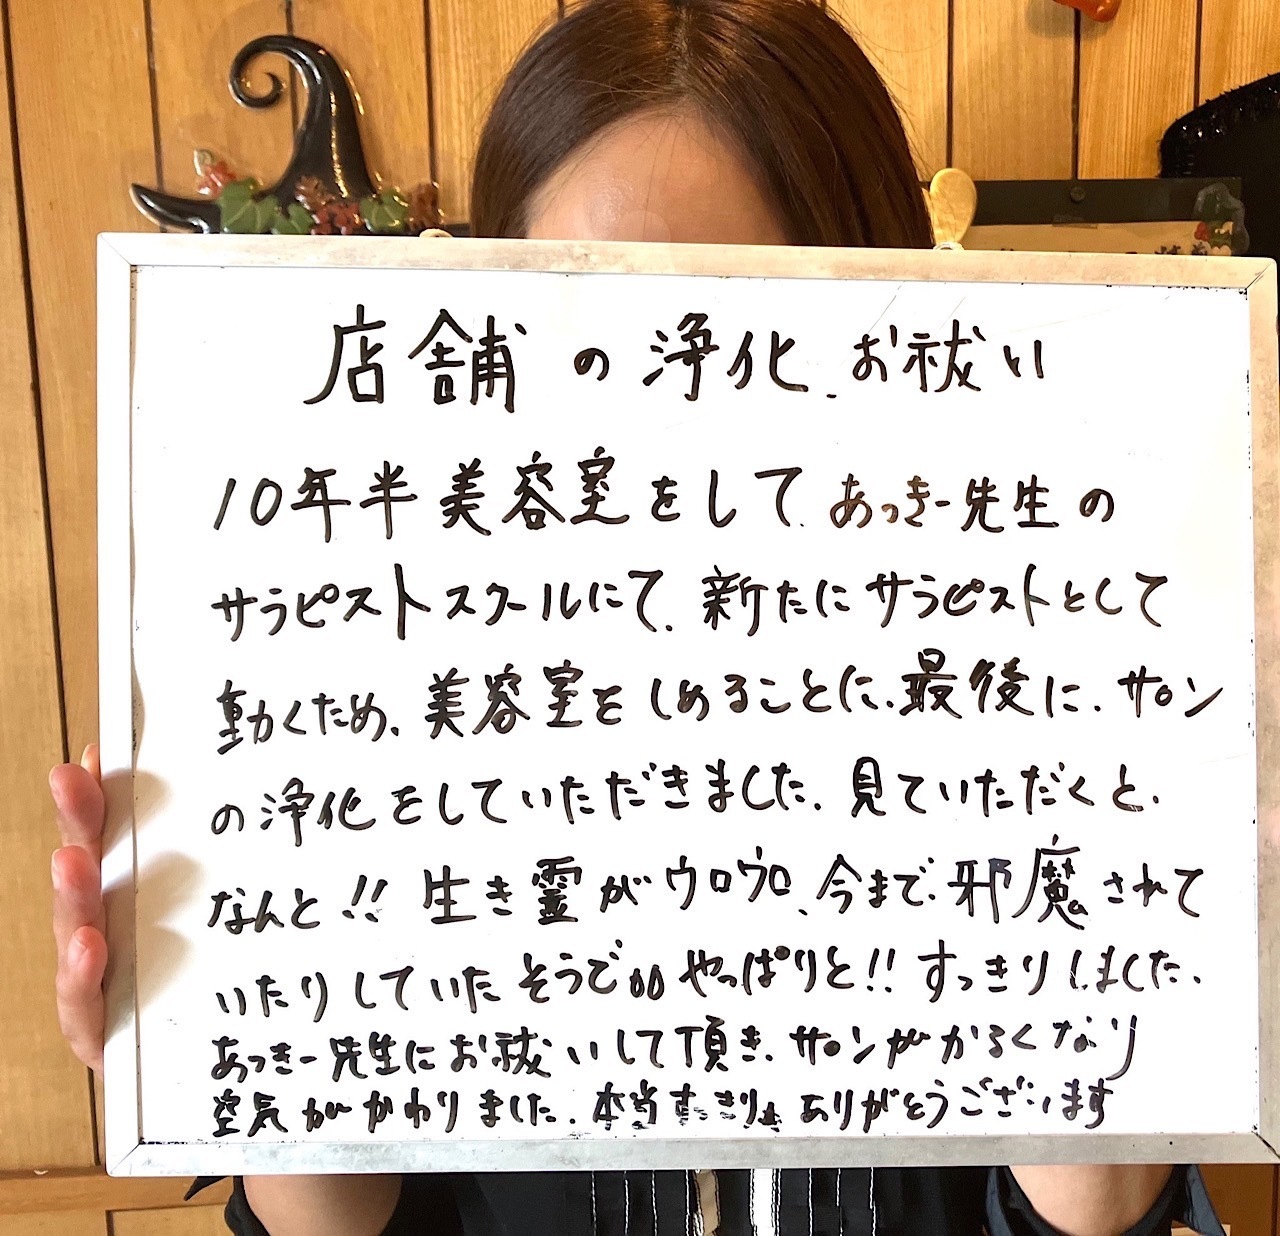 店舗の浄化、お祓い
10年半美容室をして、あっきー先生の
サラピストスクールにて、新たにサラピストとして
動くため、美容室をしめることに、最後に、サロン
の浄化をしていただきました、見ていただくと、
なんと!!生き霊がウロウロ、今まで、邪魔されて
いたりしていたそうで
やっぱりと!!すっきりしました、
あっきー先生にお祓いして頂き、サロンがかるくなり
空気がかわりました、本当すっきり
ありがとうございます